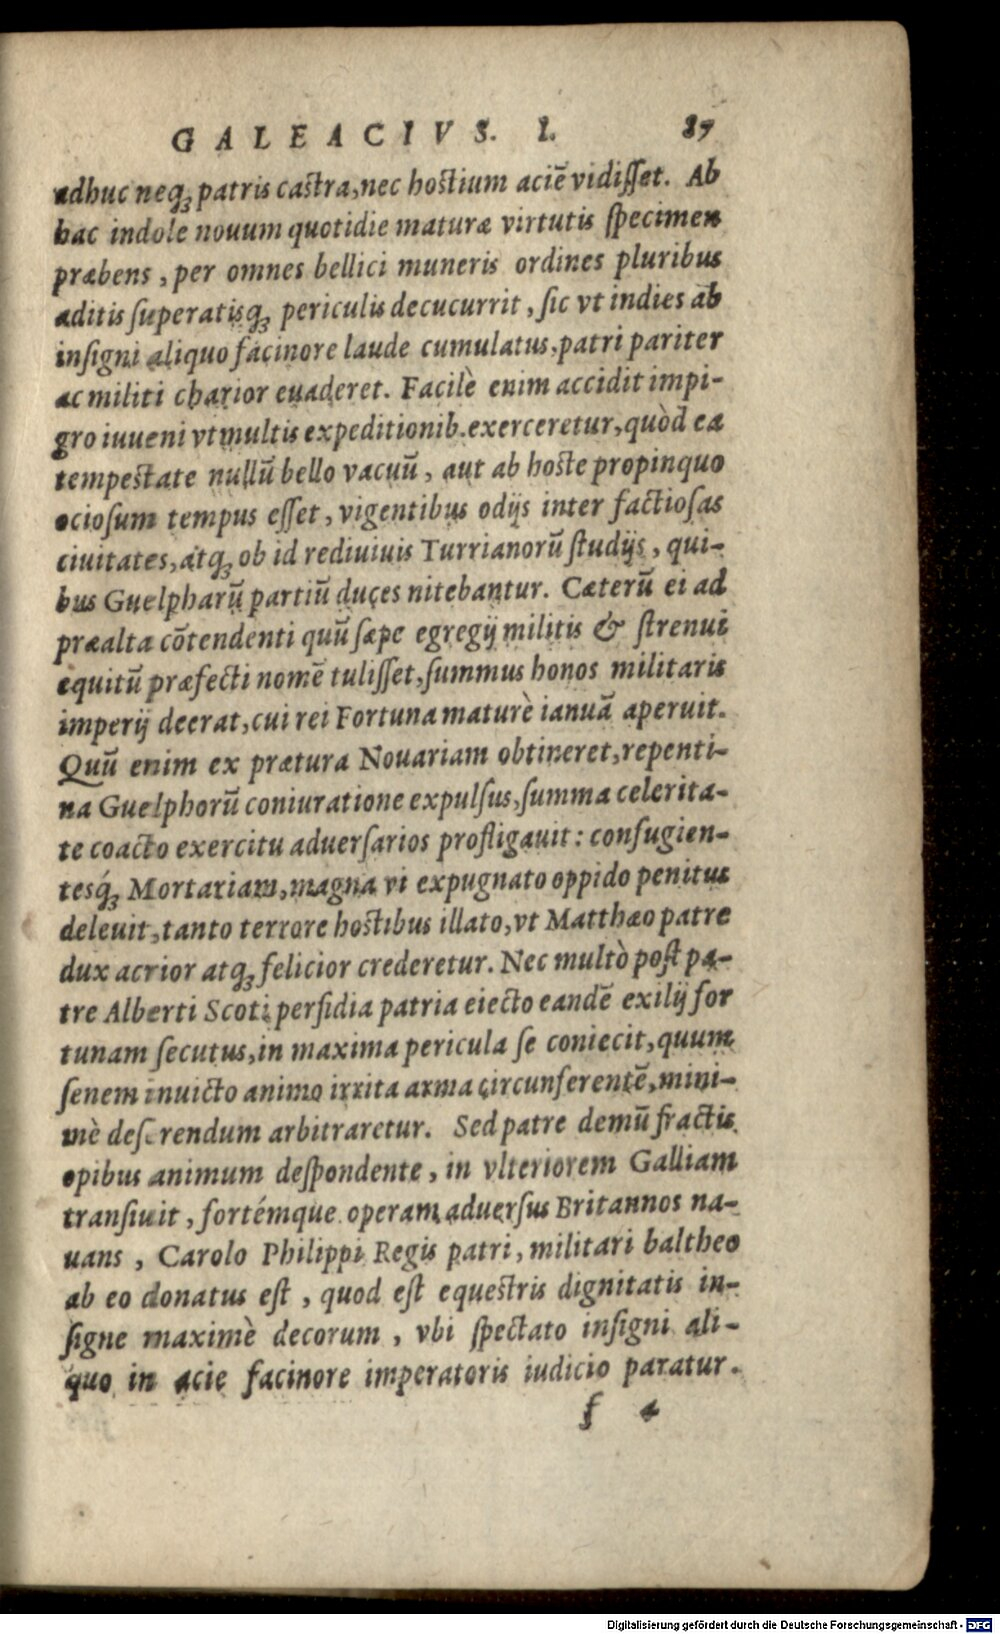 GALEACIVS. I. 87
adhuc neq; patris castra, nec hostium aciē vidisset. Ab
hac indole nouum quotidie maturæ virtutis specimen
præbens, per omnes bellici muneris ordines pluribus
aditis superatisq; periculis decucurrit, sic vt indies ab
insigni aliquo facinore laude cumulatus, patri pariter
ac militi charior euaderet. Facilè enim accidit impi-
gro iuueni vt multis expeditionib. exerceretur, quòd ea
tempestate nullū bello vacuū, aut ab hoste propinquo
ociosum tempus esset, vigentibus odijs inter factiosas
ciuitates, atq; ob id rediuiuis Turrianorū studijs, qui-
bus Guelpharū partiū duces nitebantur. Cæterū ei ad
præalta cōtendenti quū sæpe egregij militis & strenui
equitū præfecti nomē tulisset, summus honos militaris
imperij deerat, cui rei Fortuna maturè ianuā aperuit.
Quū enim ex prætura Nouariam obtineret, repenti-
na Guelphorū coniuratione expulsus, summa celerita-
te coacto exercitu aduersarios profligauit: confugien-
tesq́; Mortariam, magna vi expugnato oppido penitus
deleuit, tanto terrore hostibus illato, vt Matthæo patre
dux acrior atq; felicior crederetur. Nec multò post pa-
tre Alberti Scoti perfidia patria eiecto eandē exilij for
tunam secutus, in maxima pericula se coniecit, quum
senem inuicto animo irrita arma circunferentē, mini-
mè deserendum arbitraretur. Sed patre demū fractis
opibus animum despondente, in vlteriorem Galliam
transiuit, fortémque operam aduersus Britannos na-
uans, Carolo Philippi Regis patri, militari baltheo
ab eo donatus est, quod est equestris dignitatis in-
signe maximè decorum, vbi spectato insigni ali-
quo in acie facinore imperatoris iudicio paratur.
f 4
Digitalisierung gefördert durch die Deutsche Forschungsgemeinschaft - DFG